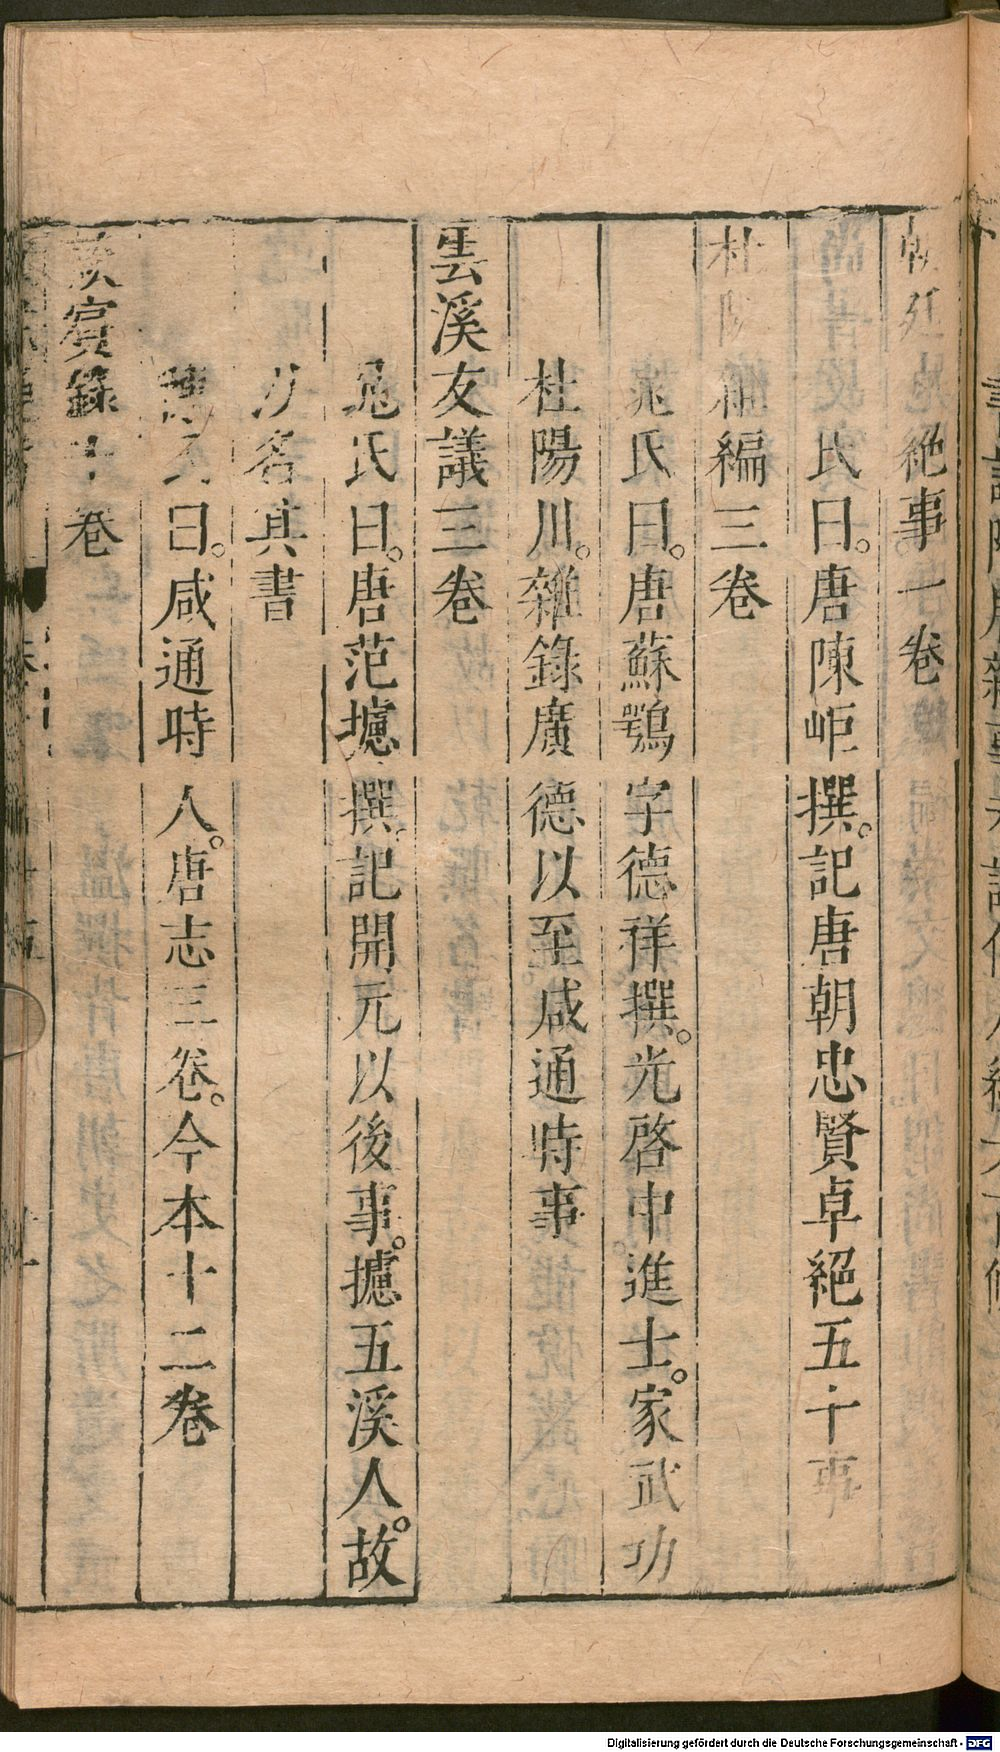 朝廷卓絶事一卷
氏曰。唐陳岠撰。記唐朝忠賢卓絕五十事
杜陽雜編三卷
晁氏曰。唐蘇鶚字德祥撰。光啓中進士。家武功
杜陽川。雜錄廣德以至咸通時事
雲溪友議三卷
晁氏曰。唐范攄撰。記開元以後事。攄五溪人。故
以名其書
陳氏曰。咸通時人。唐志三卷。今本十二卷
賓錄十卷
Digitalisierung gefördert durch die Deutsche Forschungsgemeinschaft - DFG